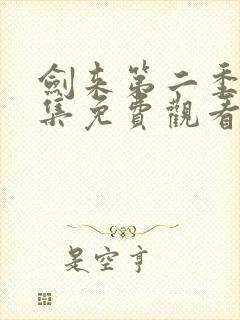 劍来第二季
集免費觀看
是空亨